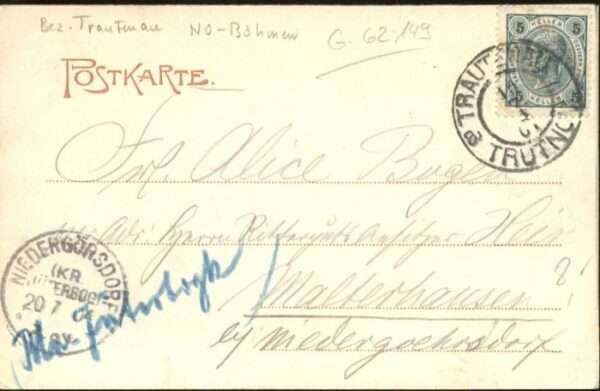 Bez. Trautenau NO-Böhmen G. 62-149
POSTKARTE.
5 HELLER 5
5 HELLER 5
TRAUTENAU
TRUTNOV
Frl. Alice Bogen
Adr. Herrn Rittergutsbesitzer
Malterhausen ?!
bei Niedergoersdorf
NIEDERGÖRSDORF
(KR
JÜTERBOG)
20 7
Jüterbogk